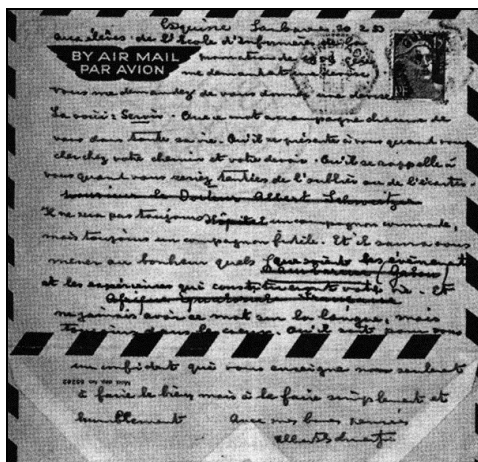 Lambaréné
aux élèves de l'école d'Infirmières
BY AIR MAIL
PAR AVION
me demandant une devise
Vous me demandez de vous donner une devise
La voici : Servir. Que ce mot accompagne chacun de
vous dans toute sa vie. Qu'il se présente à vous quand vous
cherchez votre chemin et votre devoir. Qu'il se rappelle à
vous quand vous seriez tentées de l'oublier ou de l'écarter.
Monsieur le Docteur Albert Schweitzer
Il ne sera pas toujours un compagnon commode,
Hôpital
mais toujours un compagnon fidèle. Et il saura vous
mener au bonheur quels que soient les événements
Lambaréné (Gabon)
et les expériences qui constitueront votre vie. Et
Afrique équatoriale française
ne jamais avoir ce mot sur la langue, mais
toujours dans le cœur. Qu'il soit pour vous
un confident qui vous enseigne non seulement
à faire le bien mais à le faire simplement et
humblement Avec mes bonnes pensées
Albert Schweitzer